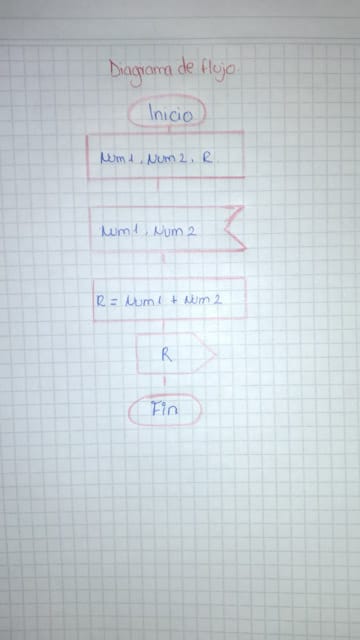 Diagrama de flujo
Inicio
Num1, Num2, R
Num1, Num2
R = Num1 + Num2
R
Fin